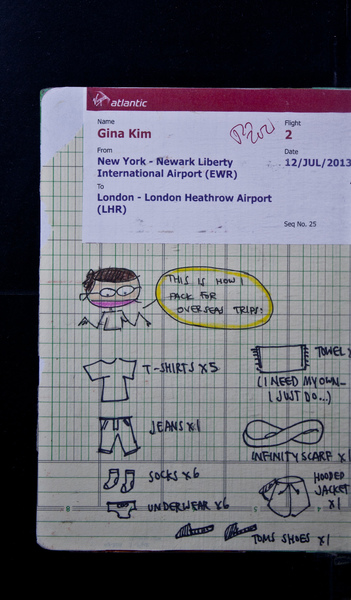 atlantic
Name
Gina Kim
Flight
2
From
New York - Newark Liberty
International Airport (EWR)
Date
12/JUL/2013
To
London - London Heathrow Airport
(LHR)
Seq No. 25
THIS IS HOW I
PACK FOR
OVERSEAS TRIPS:
T-SHIRTS x5
TOWEL x
(I NEED MY OWN-
I JUST DO...)
JEANS x1
INFINITY SCARF x1
SOCKS x6
HOODED
JACKET
x1
UNDERWEAR x6
TOMS SHOES x1